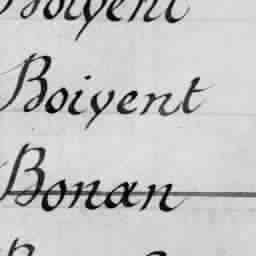 Boiyent
Boiyent
Bonan